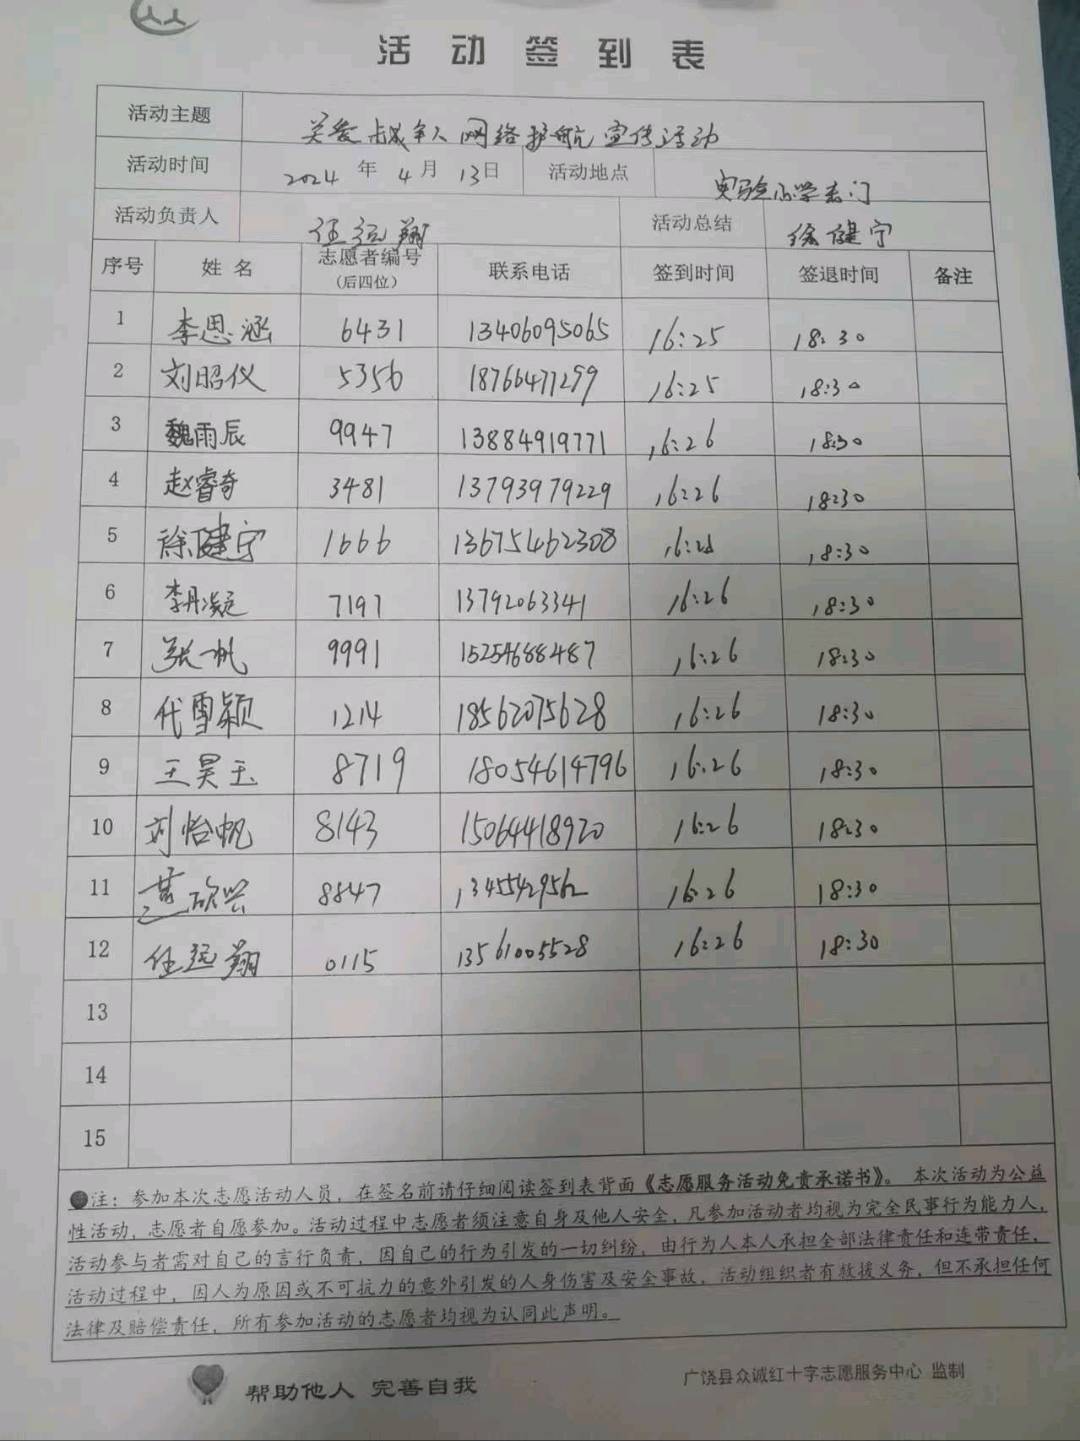 活动签到表
活动主题 关爱 成年人网络护航宣传活动
活动时间 2024年4月13日 活动地点 实验小学东门
活动负责人 任远翔 活动总结 徐健宁
序号 姓名 志愿者编号(后四位) 联系电话 签到时间 签退时间 备注
1 李思涵 6431 13406095065 16:25 18:30
2 刘昭仪 5356 18766477299 16:25 18:30
3 魏雨辰 9947 13884919771 16:26 18:30
4 赵睿奇 3481 13793979229 16:26 18:30
5 徐健宁 1666 13675462308 16:26 18:30
6 李丹凝 7197 13792063341 16:26 18:30
7 张一帆 9991 15254688487 16:26 18:30
8 代雪颖 1214 18562075628 16:26 18:30
9 王昊玉 8719 18054614796 16:26 18:30
10 刘怡帆 8143 15064418920 16:26 18:30
11 8847 13455429562 16:26 18:30
12 任远翔 0115 13561005528 16:26 18:30
13
14
15
●注：参加本次志愿活动人员，在签名前请仔细阅读签到表背面《志愿服务活动免责承诺书》。本次活动为公益
性活动，志愿者自愿参加。活动过程中志愿者须注意自身及他人安全，凡参加活动者均视为完全民事行为能力人，
活动参与者需对自己的言行负责，因自己的行为引发的一切纠纷，由行为人本人承担全部法律责任和连带责任，
活动过程中，因人为原因或不可抗力的意外引发的人身伤害及安全事故，活动组织者有救援义务，但不承担任何
法律及赔偿责任，所有参加活动的志愿者均视为认同此声明。
帮助他人 完善自我 广饶县众诚红十字志愿服务中心 监制